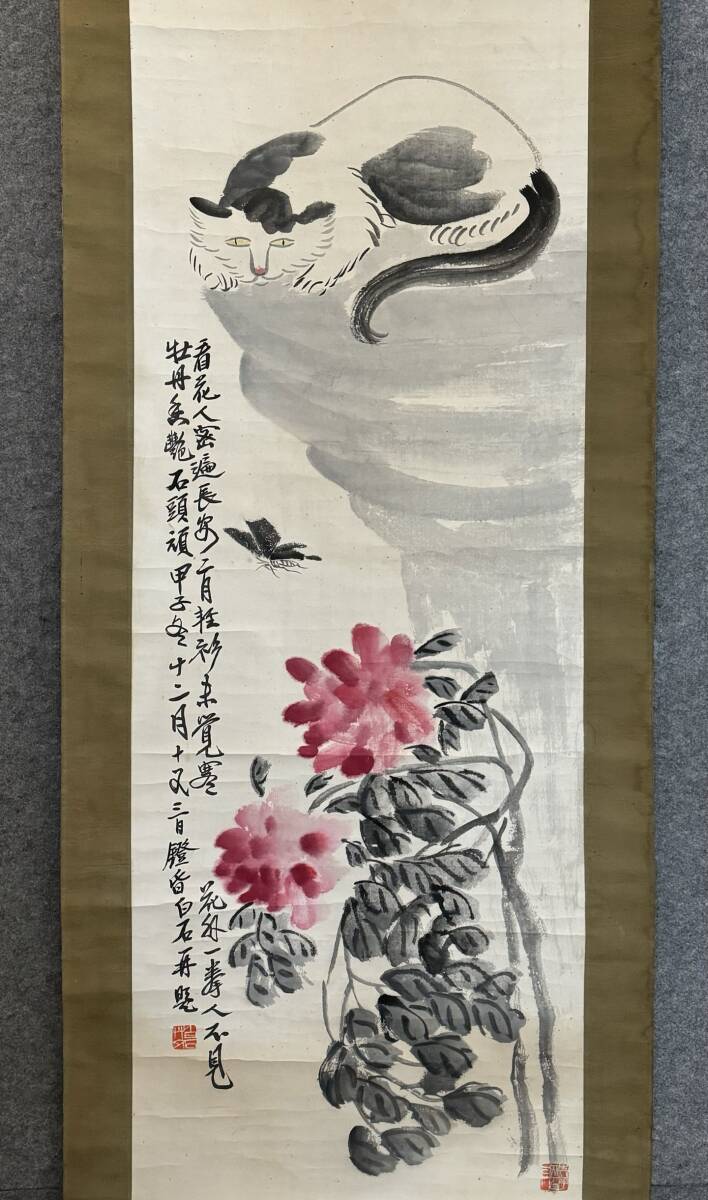 看花人密遍長安二月輕衫未覺寒 花外一拳人不見
牡丹香艷石頭頑 甲子冬十二月十又三日鐙昏白石再題